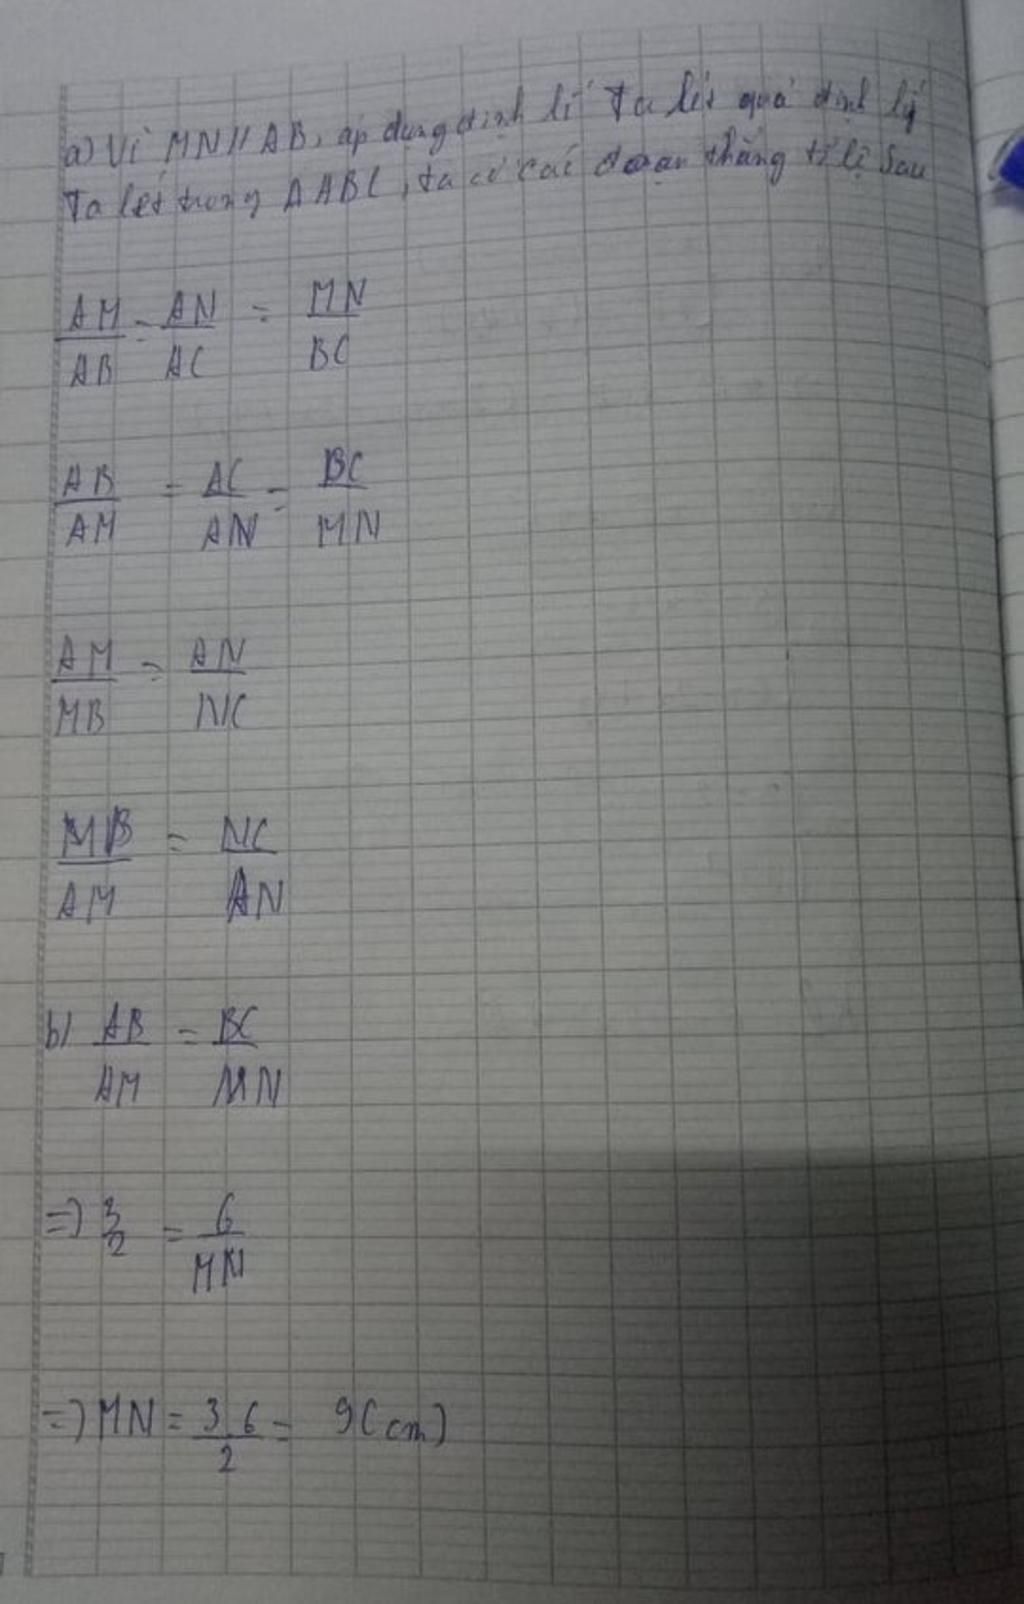 a) Vì MN // AB, áp dụng định lí Ta lét quả định lý
Ta lét trong ΔABC, ta có các đoạn thẳng tỉ lệ sau
AM/AB = AN/AC = MN/BC
AB/AM = AC/AN = BC/MN
AM/MB = AN/NC
MB/AM = NC/AN
b) AB/AM = BC/MN
=> 3/2 = 6/MN
=> MN = 3.6/2 = 9(cm)